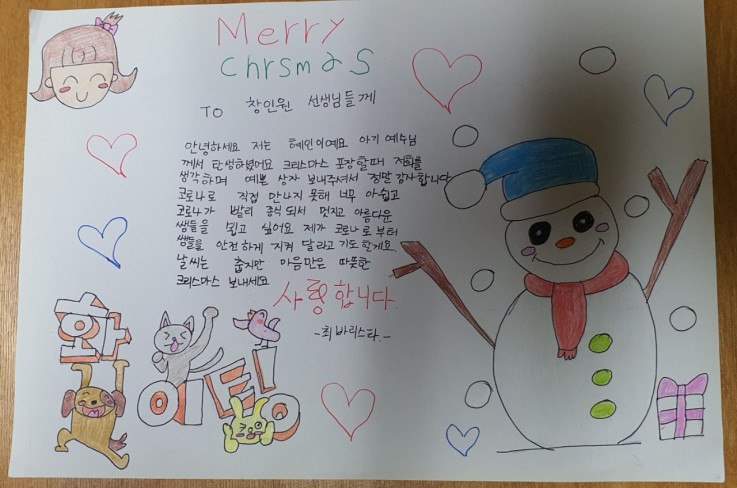 Merry
Chrsmas
TO 창인원 선생님들께
안녕하세요 저는 혜인이예요 아기 예수님
께서 탄생하셨어요 크리스마스 포장할때 저희를
생각하며 예쁜 상자 보내주셔서 정말 감사합니다
코로나로 직접 만나지 못해 너무 아쉽고
코로나가 빨리 종식 되서 멋지고 아름다운
쌤들을 뵙고 싶어요 제가 코로나로부터
쌤들을 안전하게 지켜 달라고 기도할게요
날씨는 춥지만 마음만은 따뜻한
크리스마스 보내세요
사랑합니다
-최바리스타.-
화
이팅